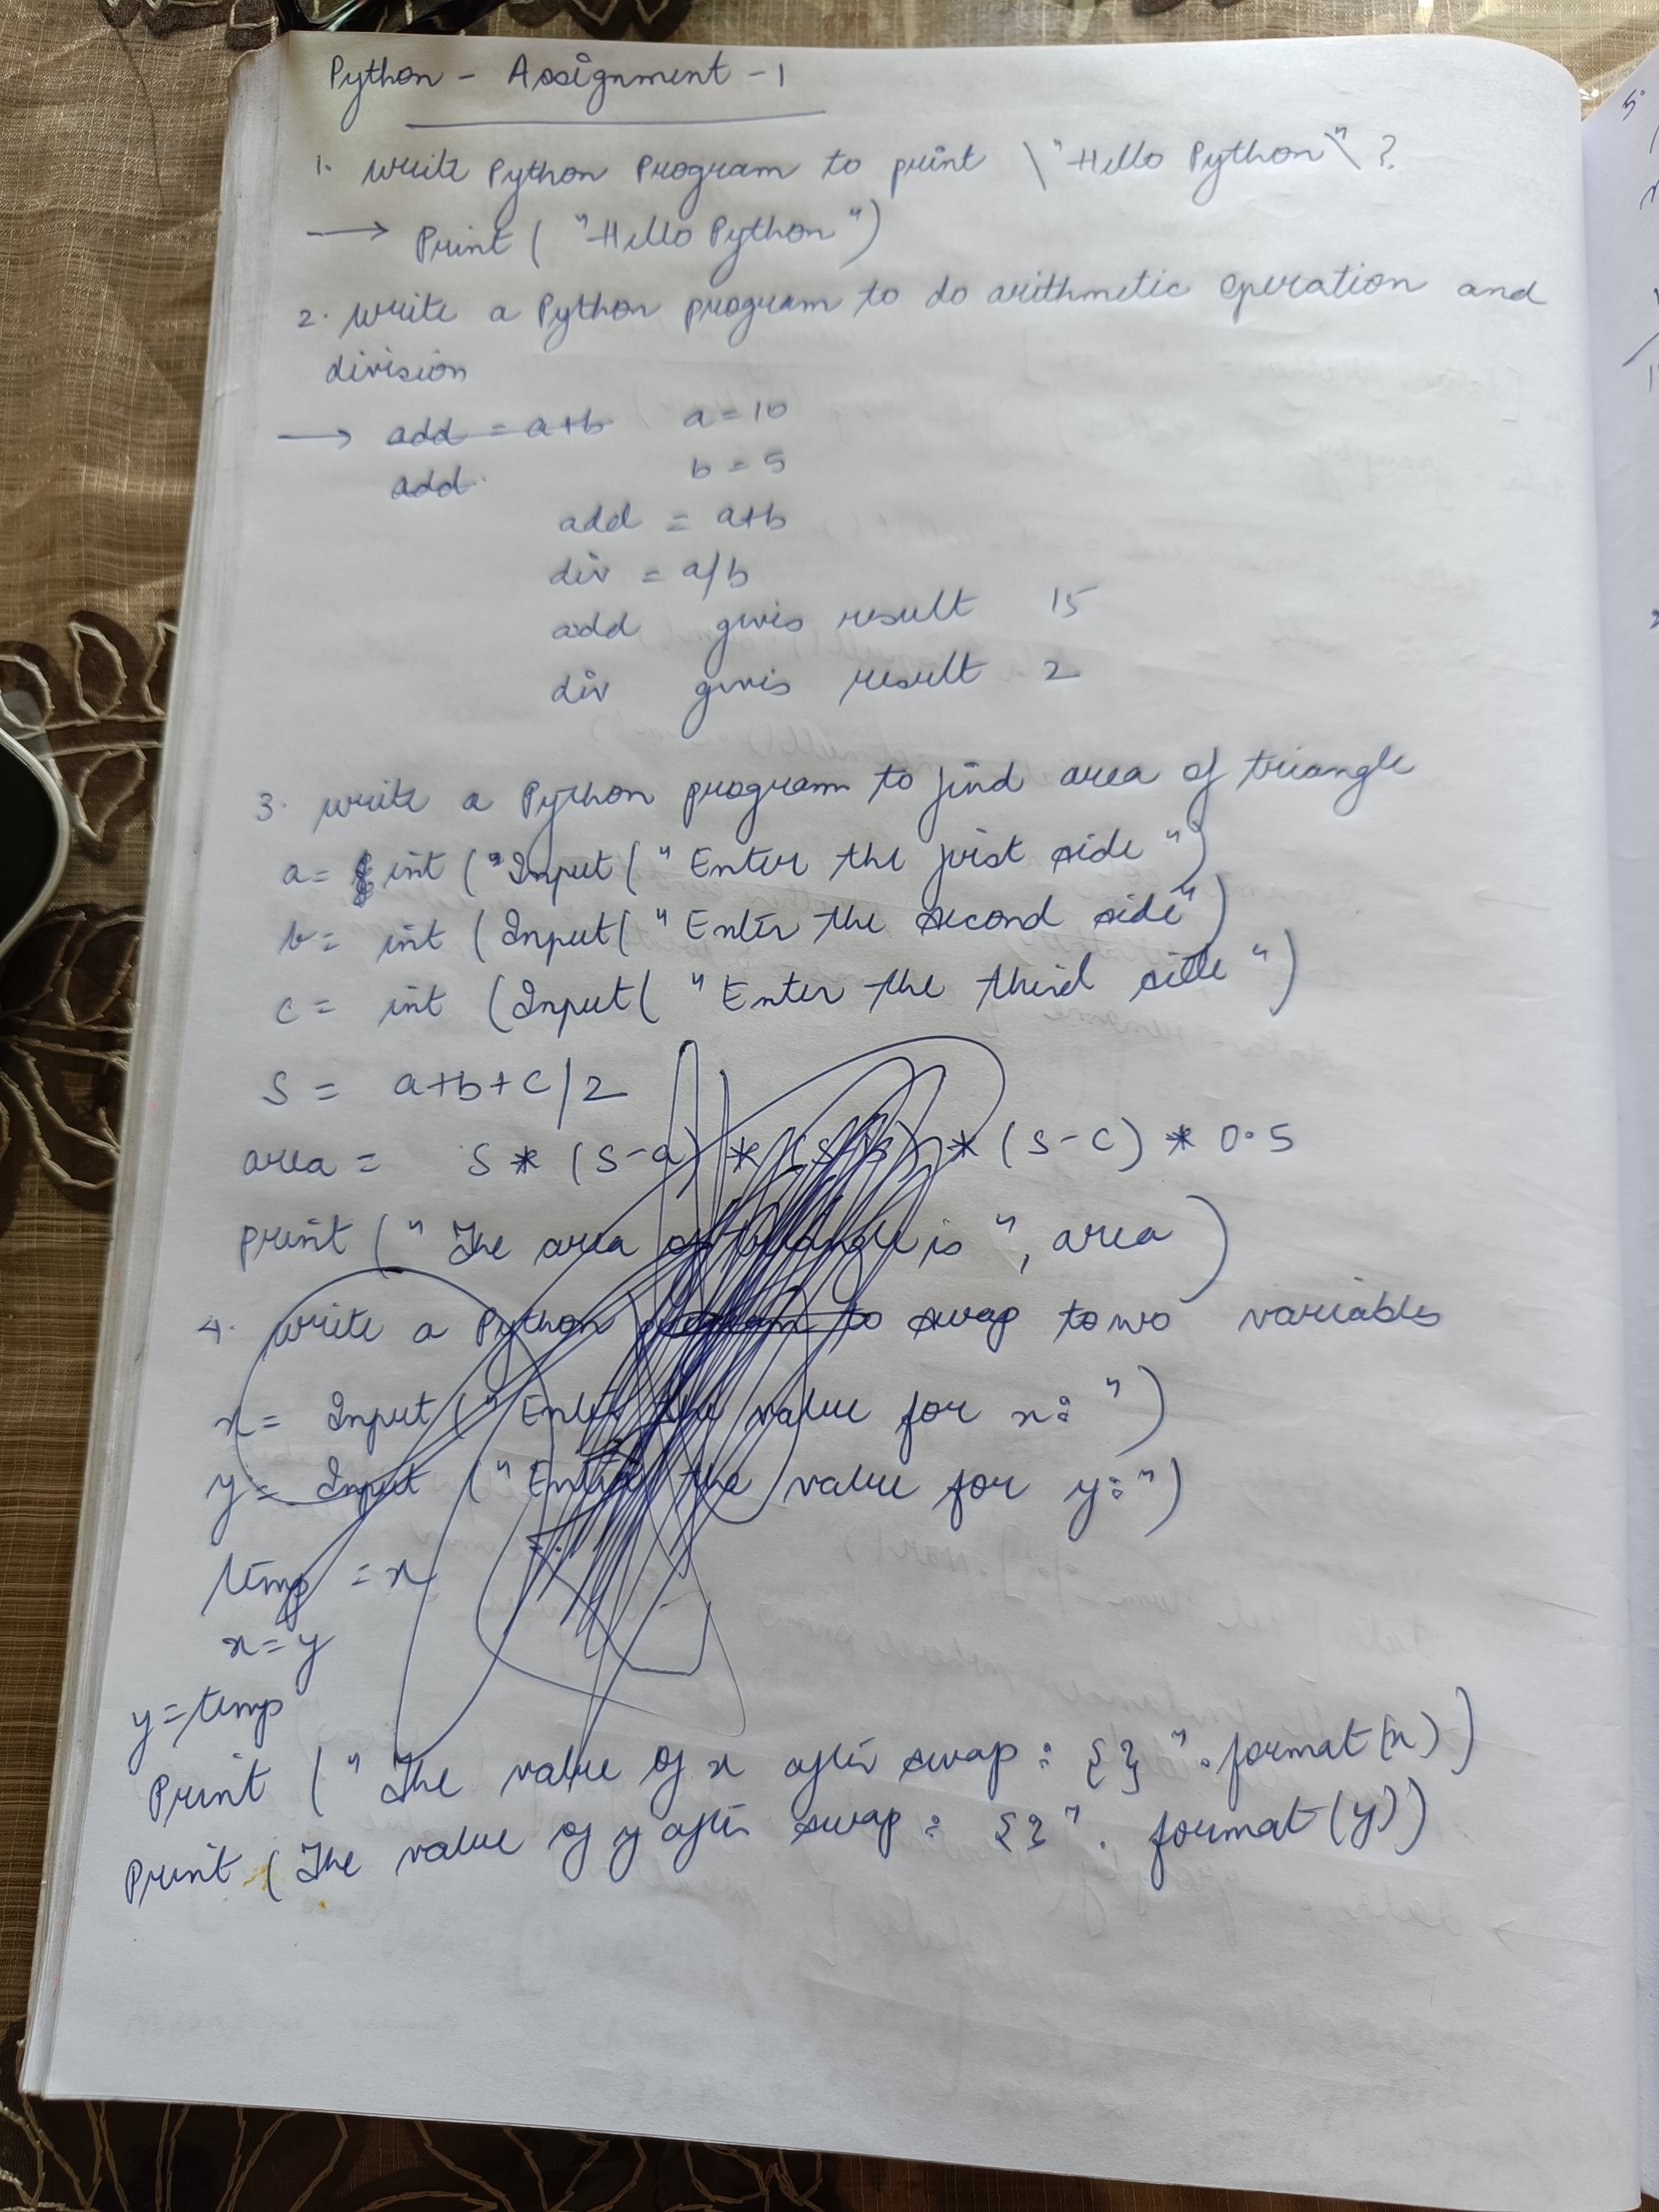 Python - Assignment - 1
1. Write Python Program to print \"Hello Python"\ ?
→ Print ( "Hello Python")
2. Write a Python program to do arithmetic operation and
division
→ add = a+b a = 10
add b = 5
add = a+b
div = a/b
add gives result 15
div gives result 2
3. write a Python program to find area of triangle
a = int ("Input( "Enter the first side")
b = int (Input( "Enter the second side")
c = int (Input( "Enter the third side")
S = a+b+c/2
area = S * (S-a) * (S-b) * (S-c) * 0.5
print (" The area of triangle is ", area )
4. write a Python program to swap to wo variables
x = Input (" Enter the value for x: ")
y = Input (" Enter the value for y: ")
temp = x
x = y
y = temp
Print (" The value of x after swap : {} ".format(x))
Print (The value of y after swap : {} ". format(y))
5.